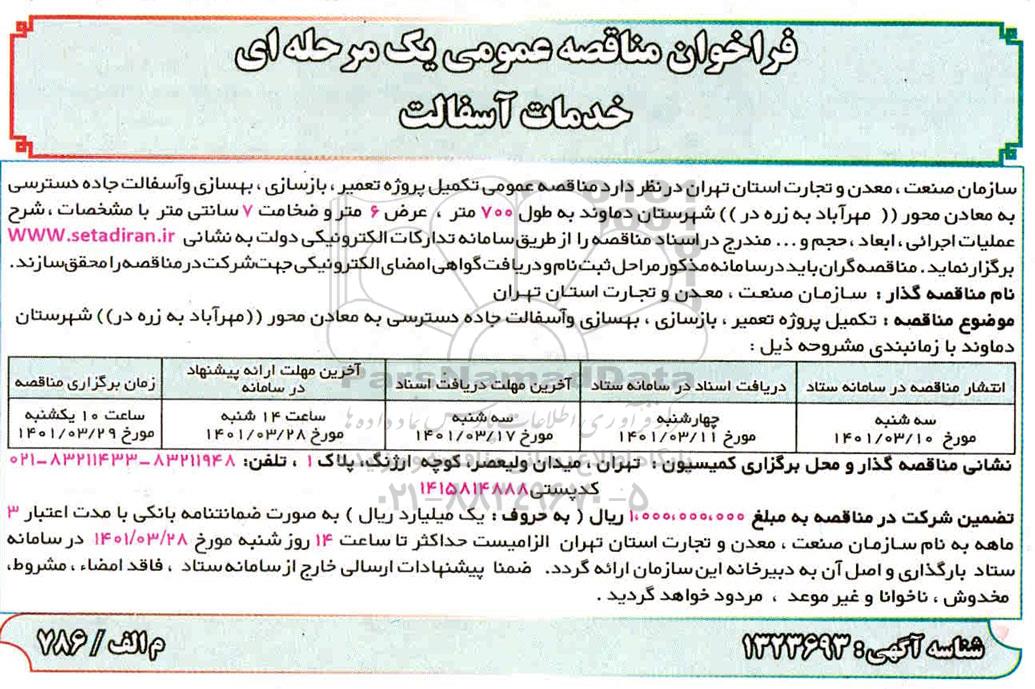 فراخوان مناقصه عمومی یک مرحله ای
خدمات آسفالت
سازمان صنعت ، معدن و تجارت استان تهران در نظر دارد مناقصه عمومی تکمیل پروژه تعمیر ، بازسازی ، بهسازی وآسفالت جاده دسترسی
به معادن محور (( مهرآباد به زره در )) شهرستان دماوند به طول ۷۰۰ متر ، عرض ۶ متر و ضخامت ۷ سانتی متر با مشخصات ، شرح
عملیات اجرائی ، ابعاد ، حجم و ... مندرج در اسناد مناقصه را از طریق سامانه تدارکات الکترونیکی دولت به نشانی WWW.setadiran.ir
برگزار نماید . مناقصه گران باید در سامانه مذکور مراحل ثبت نام و دریافت گواهی امضای الکترونیکی جهت شرکت در مناقصه را محقق سازند.
نام مناقصه گذار : سازمان صنعت ، معدن و تجارت استان تهران
موضوع مناقصه : تکمیل پروژه تعمیر ، بازسازی ، بهسازی وآسفالت جاده دسترسی به معادن محور ((مهرآباد به زره در)) شهرستان
دماوند با زمانبندی مشروحه ذیل :
انتشار مناقصه در سامانه ستاد | دریافت اسناد در سامانه ستاد | آخرین مهلت دریافت اسناد | آخرین مهلت ارائه پیشنهاد در سامانه | زمان برگزاری مناقصه
سه شنبه مورخ ۱۴۰۱/۰۳/۱۰ | چهارشنبه مورخ ۱۴۰۱/۰۳/۱۱ | سه شنبه مورخ ۱۴۰۱/۰۳/۱۷ | ساعت ۱۴ شنبه مورخ ۱۴۰۱/۰۳/۲۸ | ساعت ۱۰ یکشنبه مورخ ۱۴۰۱/۰۳/۲۹
نشانی مناقصه گذار و محل برگزاری کمیسیون : تهران ، میدان ولیعصر، کوچه ارژنگ، پلاک ۱ ، تلفن: ۸۳۲۱۱۹۴۸-۸۳۲۱۱۴۳۳-۰۲۱
کدپستی ۱۴۱۵۸۱۴۸۸۸
تضمین شرکت در مناقصه به مبلغ ۱,۰۰۰,۰۰۰,۰۰۰ ریال ( به حروف : یک میلیارد ریال ) به صورت ضمانتنامه بانکی با مدت اعتبار ۳
ماهه به نام سازمان صنعت ، معدن و تجارت استان تهران الزامیست حداکثر تا ساعت ۱۴ روز شنبه مورخ ۱۴۰۱/۰۳/۲۸ در سامانه
ستاد بارگذاری و اصل آن به دبیرخانه این سازمان ارائه گردد. ضمنا پیشنهادات ارسالی خارج از سامانه ستاد ، فاقد امضاء ، مشروط،
مخدوش ، ناخوانا و غیر موعد ، مردود خواهد گردید .
شناسه آگهی : ۱۳۲۳۶۹۳
م الف / ۷۸۶
ParsNamadData
۰۲۱-۸۸۳۴۹۶۷۰-۵